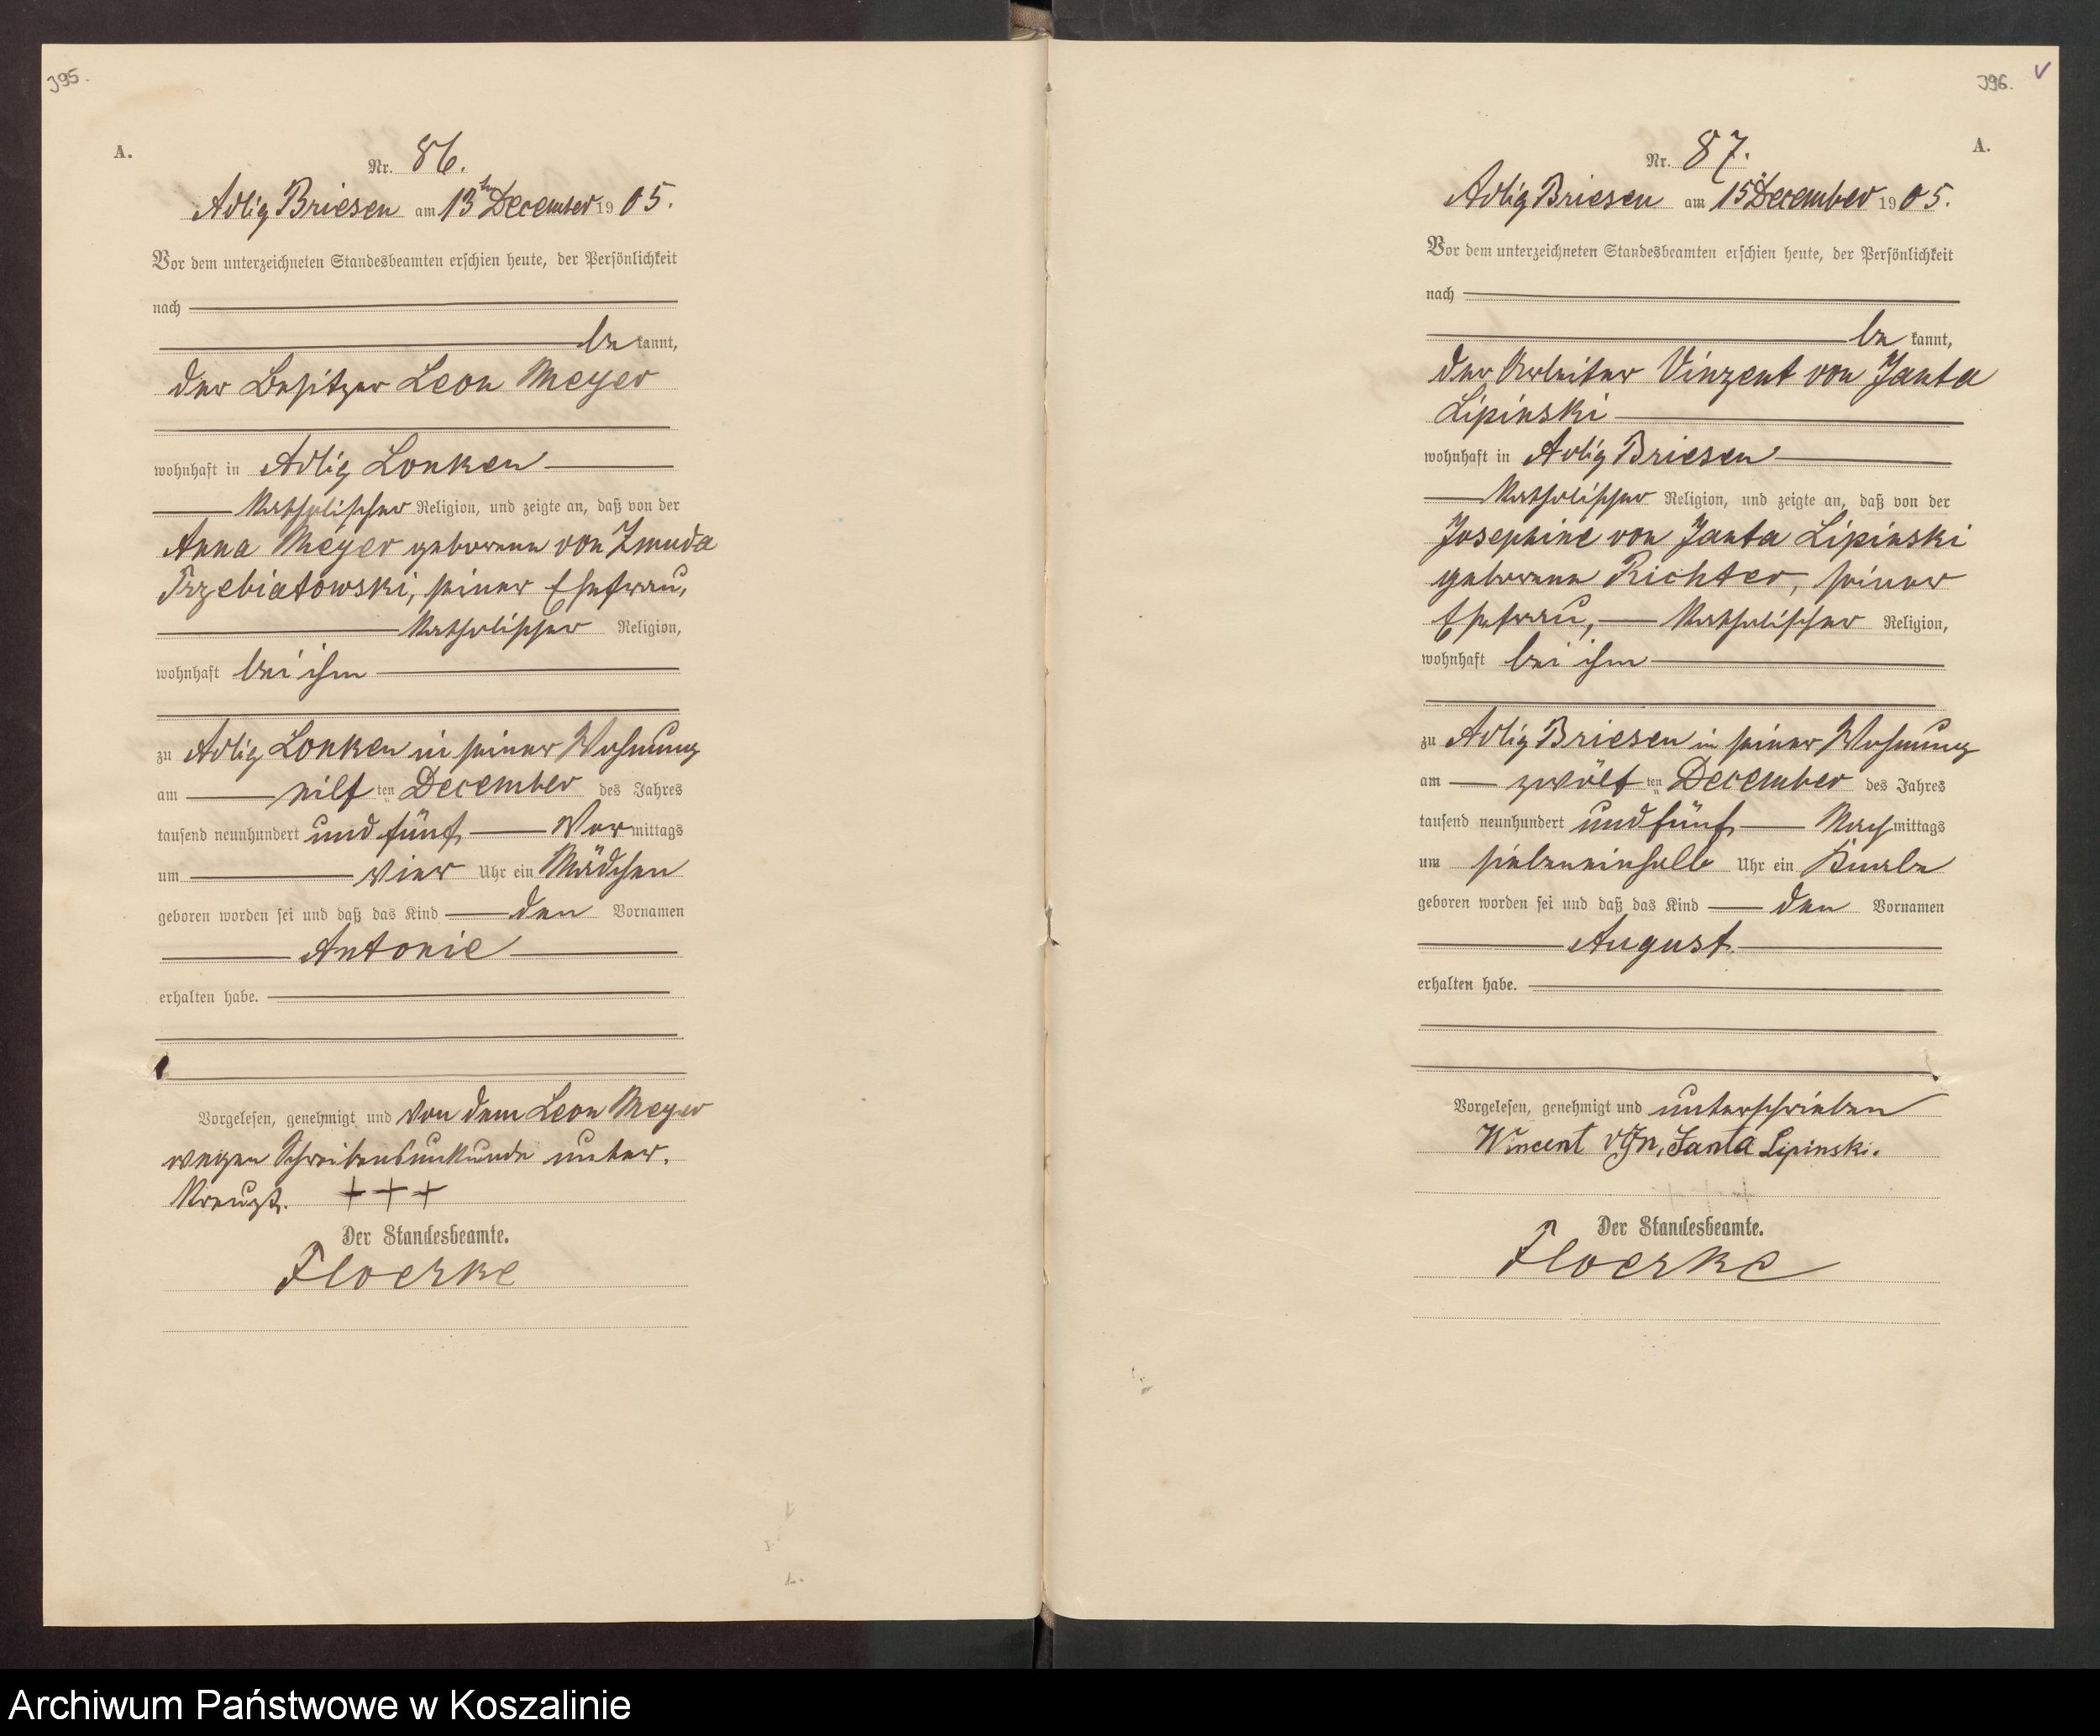 395.
A.
Nr. 86.
Adlig Briesen am 13ten December 1905.
Vor dem unterzeichneten Standesbeamten erschien heute, der Persönlichkeit
nach
be kannt,
der Besitzer Leon Meyer
wohnhaft in Adlig Lonken
katholischer Religion, und zeigte an, daß von der
Anna Meyer geborene von Zmuda
Trzebiatowski, seiner Ehefrau,
katholischer Religion,
wohnhaft bei ihm
zu Adlig Lonken in seiner Wohnung
am eilf ten December des Jahres
tausend neunhundert und fünf Vormittags
um vier Uhr ein Mädchen
geboren worden sei und daß das Kind den Vornamen
Antonie
erhalten habe.
Vorgelesen, genehmigt und von dem Leon Meyer
wegen Schreibensunkunde unter.
kreuzt. +++
Der Standesbeamte.
Floerke
396.
A.
Nr. 87.
Adlig Briesen am 15. December 1905.
Vor dem unterzeichneten Standesbeamten erschien heute, der Persönlichkeit
nach
be kannt,
der Arbeiter Vinzent von Janta
Lipinski
wohnhaft in Adlig Briesen
katholischer Religion, und zeigte an, daß von der
Josephine von Janta Lipinski
geborene Richter, seiner
Ehefrau, katholischer Religion,
wohnhaft bei ihm
zu Adlig Briesen in seiner Wohnung
am zwölf ten December des Jahres
tausend neunhundert und fünf Nachmittags
um siebeneinhalb Uhr ein Knabe
geboren worden sei und daß das Kind den Vornamen
August
erhalten habe.
Vorgelesen, genehmigt und unterschrieben
Wincent Janta Lipinski.
Der Standesbeamte.
Floerke
Archiwum Państwowe w Koszalinie